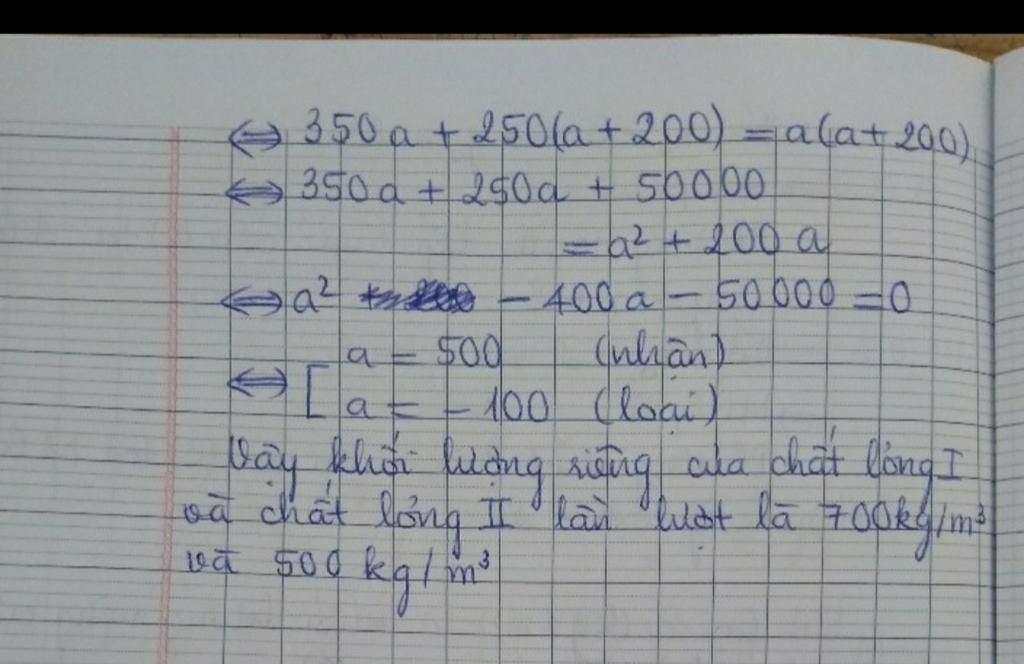 ⇔ 350a + 250(a + 200) = a(a + 200)
⇔ 350a + 250a + 50000
= a² + 200a
⇔ a² - 400a - 50000 = 0
⇔ [ a = 500 (nhận)
a = -100 (loại)
Vậy khối lượng riêng của chất lỏng I
và chất lỏng II lần lượt là 700kg/m³
và 500 kg/m³